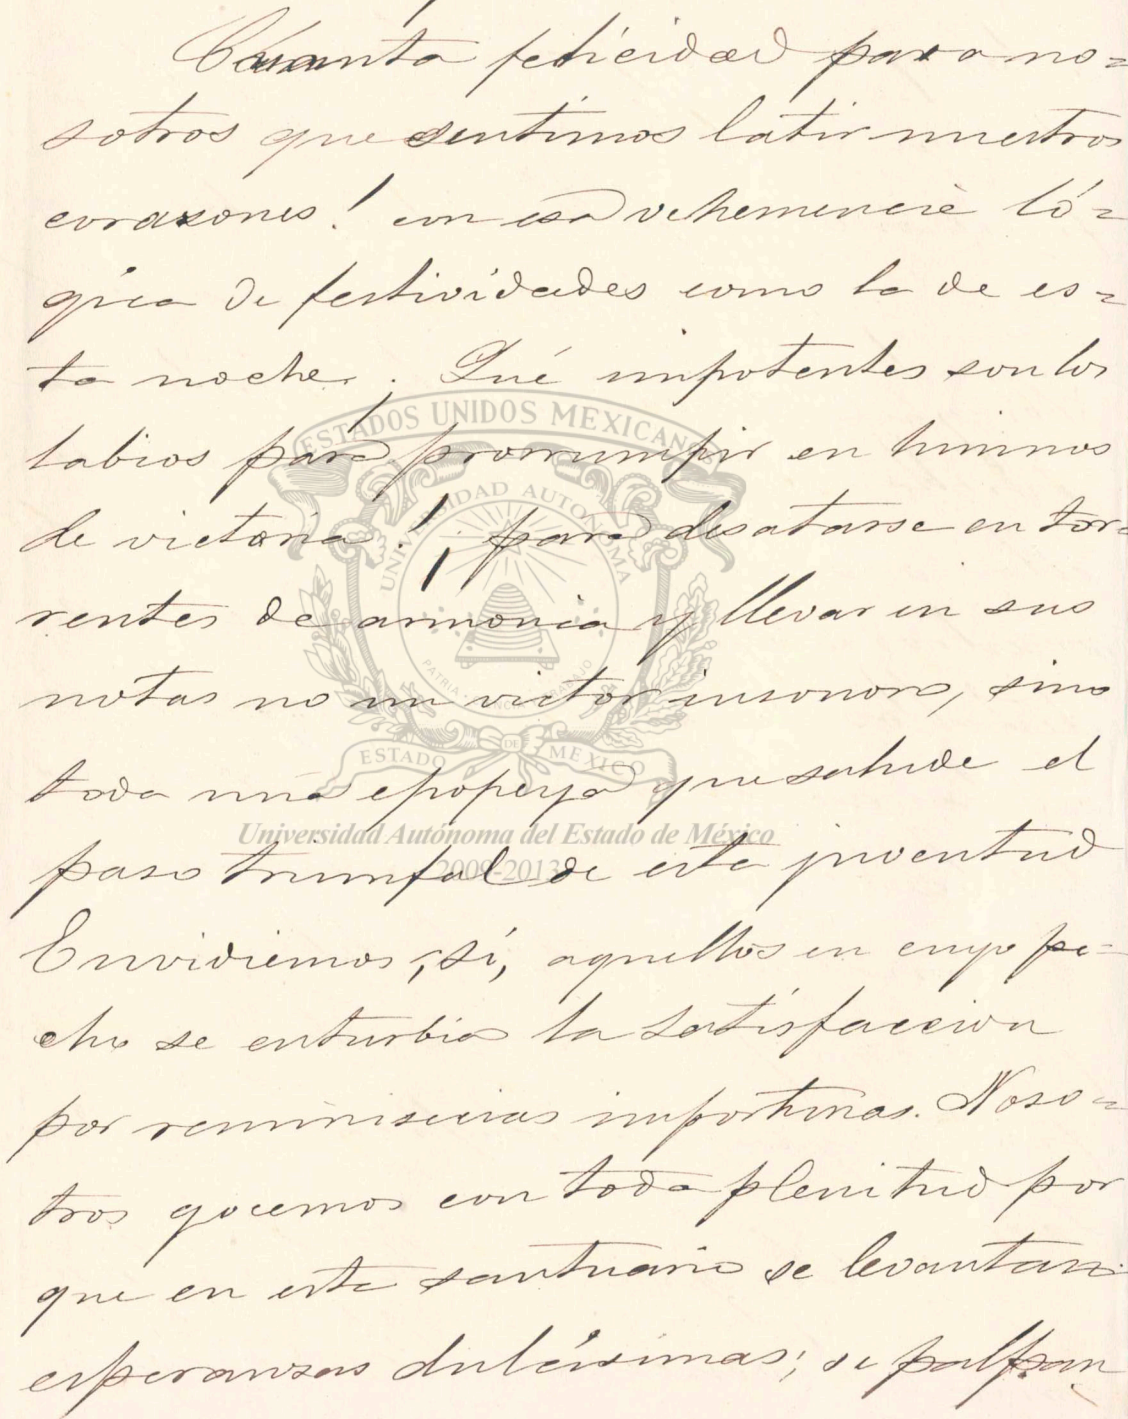 Cuanta felicidad para no=
sotros que sentimos latir nuestros
corazones! con esa vehemencia ló=
gica de festividades como la de es=
ta noche. Qué impotentes son los
labios para prorrumpir en himnos
de victoria! ¡para desatarse en tor=
rentes de armonia y llevar en sus
notas no un victor insonoro, sino
toda una epopeya que salude el
paso triunfal de esta juventud
Envidiemos, sí, aquellos en cuyo pe=
cho se enturbia la satisfaccion
por reminiscias importunas. Noso=
tros gocemos con toda plenitud por
que en este santuario se levantan
esperanzas dulcísimas; se palpan
ESTADOS UNIDOS MEXICANOS
UNIVERSIDAD AUTONOMA
PATRIA
ESTADO DE MEXICO
Universidad Autónoma del Estado de México
2009-2013